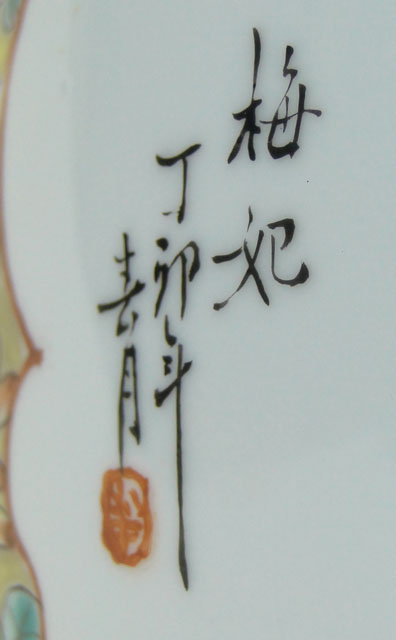 梅妃
丁卯年
春月